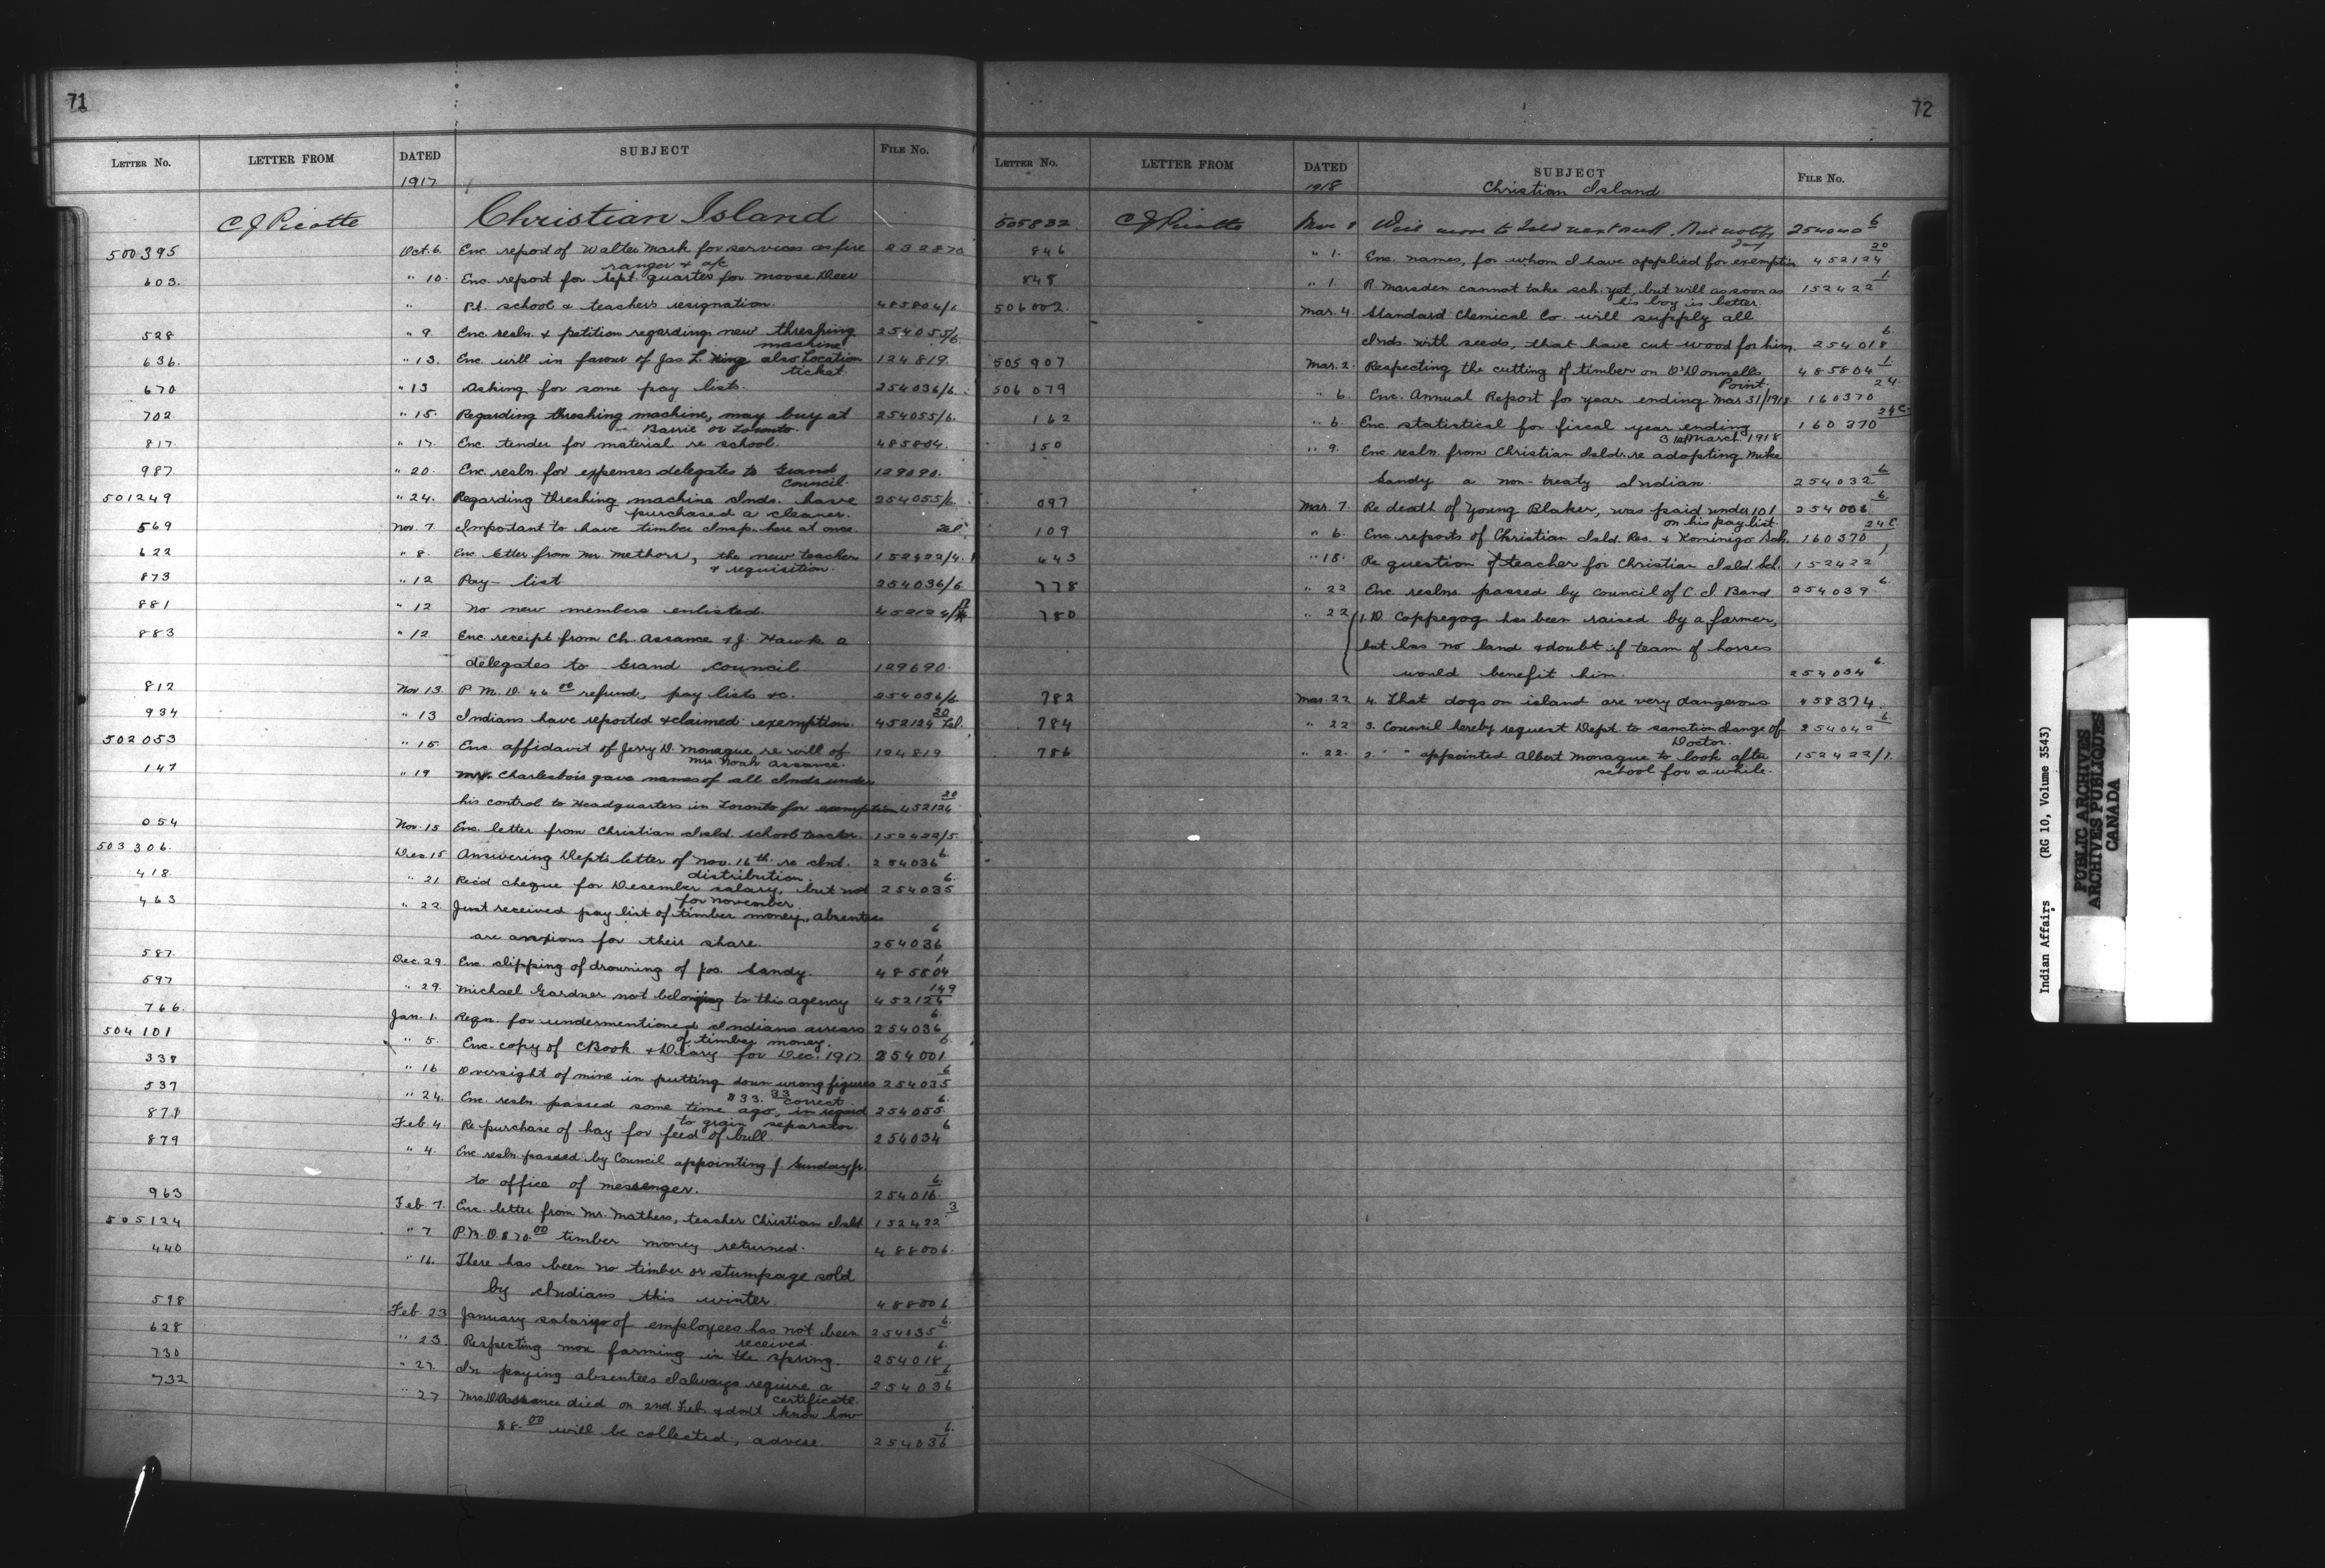 71
LETTER NO. LETTER FROM DATED SUBJECT FILE NO.
1917
C J Picotte Christian Island
500395 Oct. 6. Enc. report of Walter Mark for services as fire 232870
ranger & a/c
603. " 10. Enc. report for Sept. quarter for Moose Deer
" Pt. school & teacher's resignation. 485804/1
528 " 9 Enc. resln. & petition regarding new threshing 254055/6.
machine.
636. " 13. Enc. will in favour of Jas L. King also Location 124819.
ticket.
670 " 13 Asking for some pay lists. 254036/6.
702. " 15. Regarding threshing machine, may buy at 254055/6.
Barrie or Toronto.
817. " 17. Enc. tender for material re school. 485804.
987. " 20. Enc. resln. for expenses delegates to Grand 129690.
Council.
501249 " 24. Regarding threshing machine Inds. have 254055/6.
purchased a cleaner.
569 Nov. 7 Important to have timber Insp. here at once. Tel.
622 " 8. Enc. letter from Mr. , the new teacher 152422/4.
& requisition.
873 " 12 Pay-list 254036/6
881 " 12 No new members enlisted.
883 " 12 Enc. receipt from Ch. Assance & J. Hawk a
delegates to Grand Council 129690.
812 Nov 13. P.M.O. 46 00 refund, pay lists &c. 254036/6
934 " 13 Indians have reported & claimed exemption. 452124 20 Tel.
502053 " 15. Enc. affidavit of Jerry D. Monague re will of 124819
Mrs. Noah Assance.
147 " 19 Mr. Charlesbois gave names of all Inds under
his control to Headquarters in Toronto for exemption 452124 20
054 Nov. 15 Enc. letter from Christian Isld. school teacher. 152422/5.
503306. Dec 15 Answering Dept's letter of Nov. 16th. re Int. 254036 6.
distribution.
418. " 21 Rec'd cheque for December salary, but not 254035 6.
for November
463 " 22 Just received pay list of timber money, absentees
are anxious for their share. 254036 6
587. Dec. 29. Enc. clipping of drowning of Jos. Sandy. 485804 1.
597 " 29. Michael Gardner not belonging to this agency 452124 149
766. Jan. 1. Reqn. for undermentioned Indians arrears 254036 6.
of timber money.
504101 " 5. Enc. copy of CBook & Diary for Dec. 1917 254001 6
338 " 16 Oversight of mine in putting down wrong figures 254035 6
$33. 33 correct.
537 " 24. Enc. resln. passed some time ago, in regard 254055 6.
to grain separator.
871 Feb 4. Re purchase of hay for feed of bull 254034 6
879 " 4. Enc resln passed by Council appointing J. Sunday Jr.
to office of messenger. 254016 6.
963 Feb. 7. Enc. letter from Mr. Mathers, teacher Christian Isld 152422 3
505124 " 7 P.M.O. 870 00 timber money returned. 488006.
440 " 16. There has been no timber or stumpage sold
by Indians this winter. 488006
598 Feb. 23 January salary of employees has not been 254035 6.
received.
628 " 23. Respecting more farming in the spring. 254018 6.
730 " 27. In paying absentees I always require a 254036 6
certificate.
732 " 27 Mrs. D Assance died on 2nd. Feb. & don't know how
$8. 00 will be collected, advise. 254036 6.
72
LETTER NO. LETTER FROM DATED SUBJECT FILE NO.
1918 Christian Island
505832 C J Picotte Mar. 1 Will move to Isld next week. 254040 6
846 " 1. Enc. names, for whom I have applied for exemption 452124 20
848 " 1. R. Marsden cannot take sch. yet, but will as soon as 152422 1.
his boy is better.
506002. Mar. 4. Standard Chemical Co. will supply all
Inds. with seeds, that have cut wood for him. 254018 6.
505907 Mar. 2. Respecting the cutting of timber on O'Donnells 485804 1
Point.
506079 " 6. Enc. Annual Report for year ending Mar. 31/1918 160370 24.
162 " 6. Enc. statistical for fiscal year ending 160370 24C.
31st March 1918
150 " 9. Enc resln. from Christian Isld. re adopting Mike
Sandy a non-treaty Indian. 254032 6
097 Mar. 7. Re death of Young Blaker, was paid under 101 254006 6.
on his pay list.
109 " 6. Enc. reports of Christian Isld. Res. & Kominigo Sch. 160370 24C
643 " 18. Re question of teacher for Christian Isld. Scl. 152422 1.
778 " 22 Enc reslns passed by council of C. I. Band 254039 6.
780 " 22 1. D. Coppegog has been raised by a farmer,
but has no land & doubt if team of horses
would benefit him. 254034 6.
782 Mar. 22 4. That dogs on island are very dangerous 458374.
784 " 22 3. Council hereby request Dept to sanction change of 254042 6
Doctor.
786 " 22. 2. " appointed Albert Monague to look after 152422/1.
school for a while.
Indian Affairs (RG 10, Volume 3543)
PUBLIC ARCHIVES
ARCHIVES PUBLIQUES
CANADA